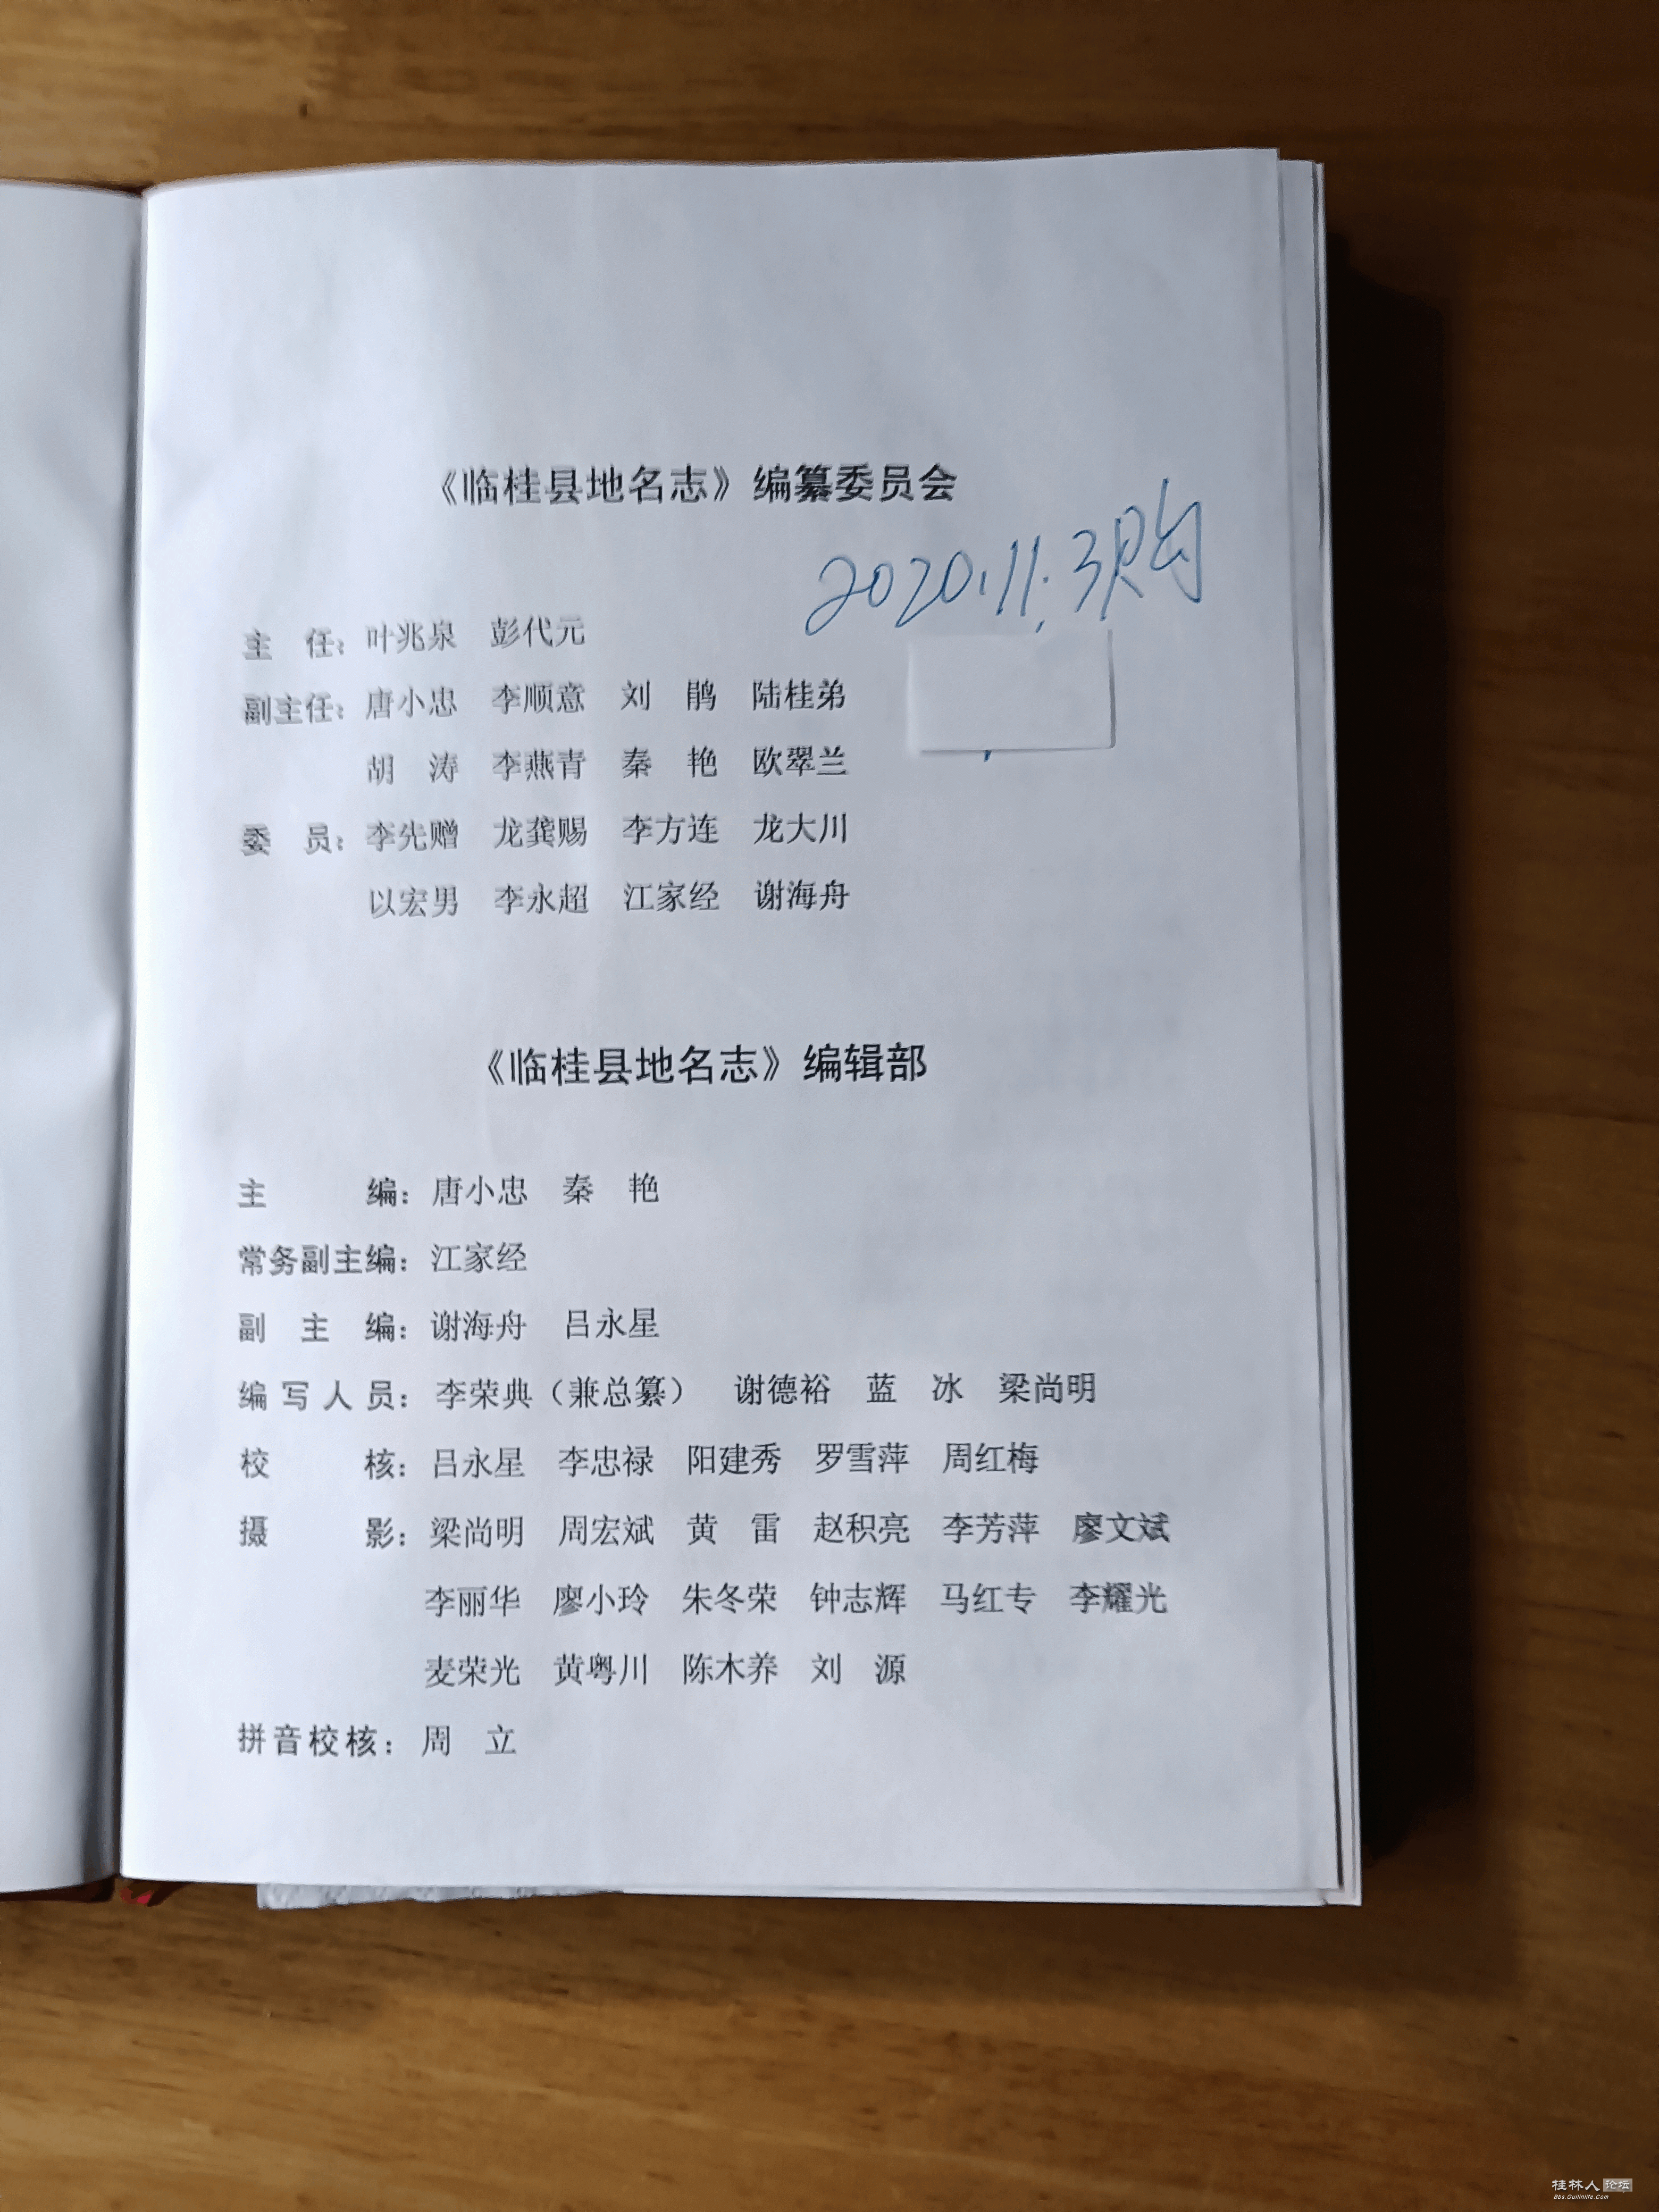 《临桂县地名志》编纂委员会
2020.11.3购
主　任：叶兆泉　彭代元
副主任：唐小忠　李顺意　刘　鹃　陆桂弟
胡　涛　李燕青　秦　艳　欧翠兰
委　员：李先赠　龙龚赐　李方连　龙大川
以宏男　李永超　江家经　谢海舟
《临桂县地名志》编辑部
主　　　编：唐小忠　秦　艳
常务副主编：江家经
副　主　编：谢海舟　吕永星
编写人员：李荣典（兼总纂）　谢德裕　蓝　冰　梁尚明
校　　　核：吕永星　李忠禄　阳建秀　罗雪萍　周红梅
摄　　　影：梁尚明　周宏斌　黄　雷　赵积亮　李芳萍　廖文斌
李丽华　廖小玲　朱冬荣　钟志辉　马红专　李耀光
麦荣光　黄粤川　陈木养　刘　源
拼音校核：周　立
桂林人论坛
Bbs.Guilinlife.Com